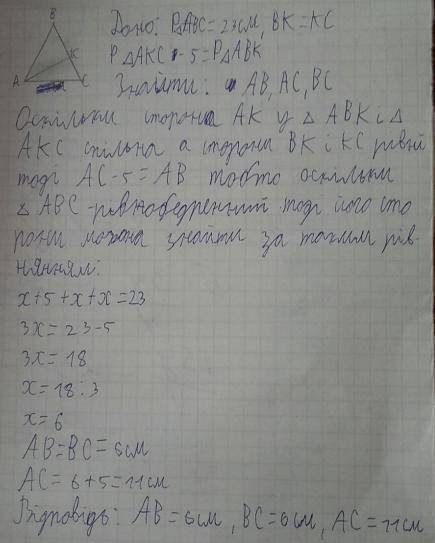 B
K
A
C
Дано: P△ABC = 23см, BK=KC
P△AKC - 5 = P△ABK
Знайти: AB, AC, BC
Оскільки сторона AK у △ ABK і △
AKC спільна а сторони BK і KC рівні
тоді AC-5=AB тобто оскільки
△ ABC-рівнобедрений тоді його сто
рони можна знайти за таким рів-
нянням:
x+5+x+x=23
3x=23-5
3x=18
x=18:3
x=6
AB=BC=6см
AC=6+5=11см
Відповідь: AB=6см, BC=6см, AC=11см